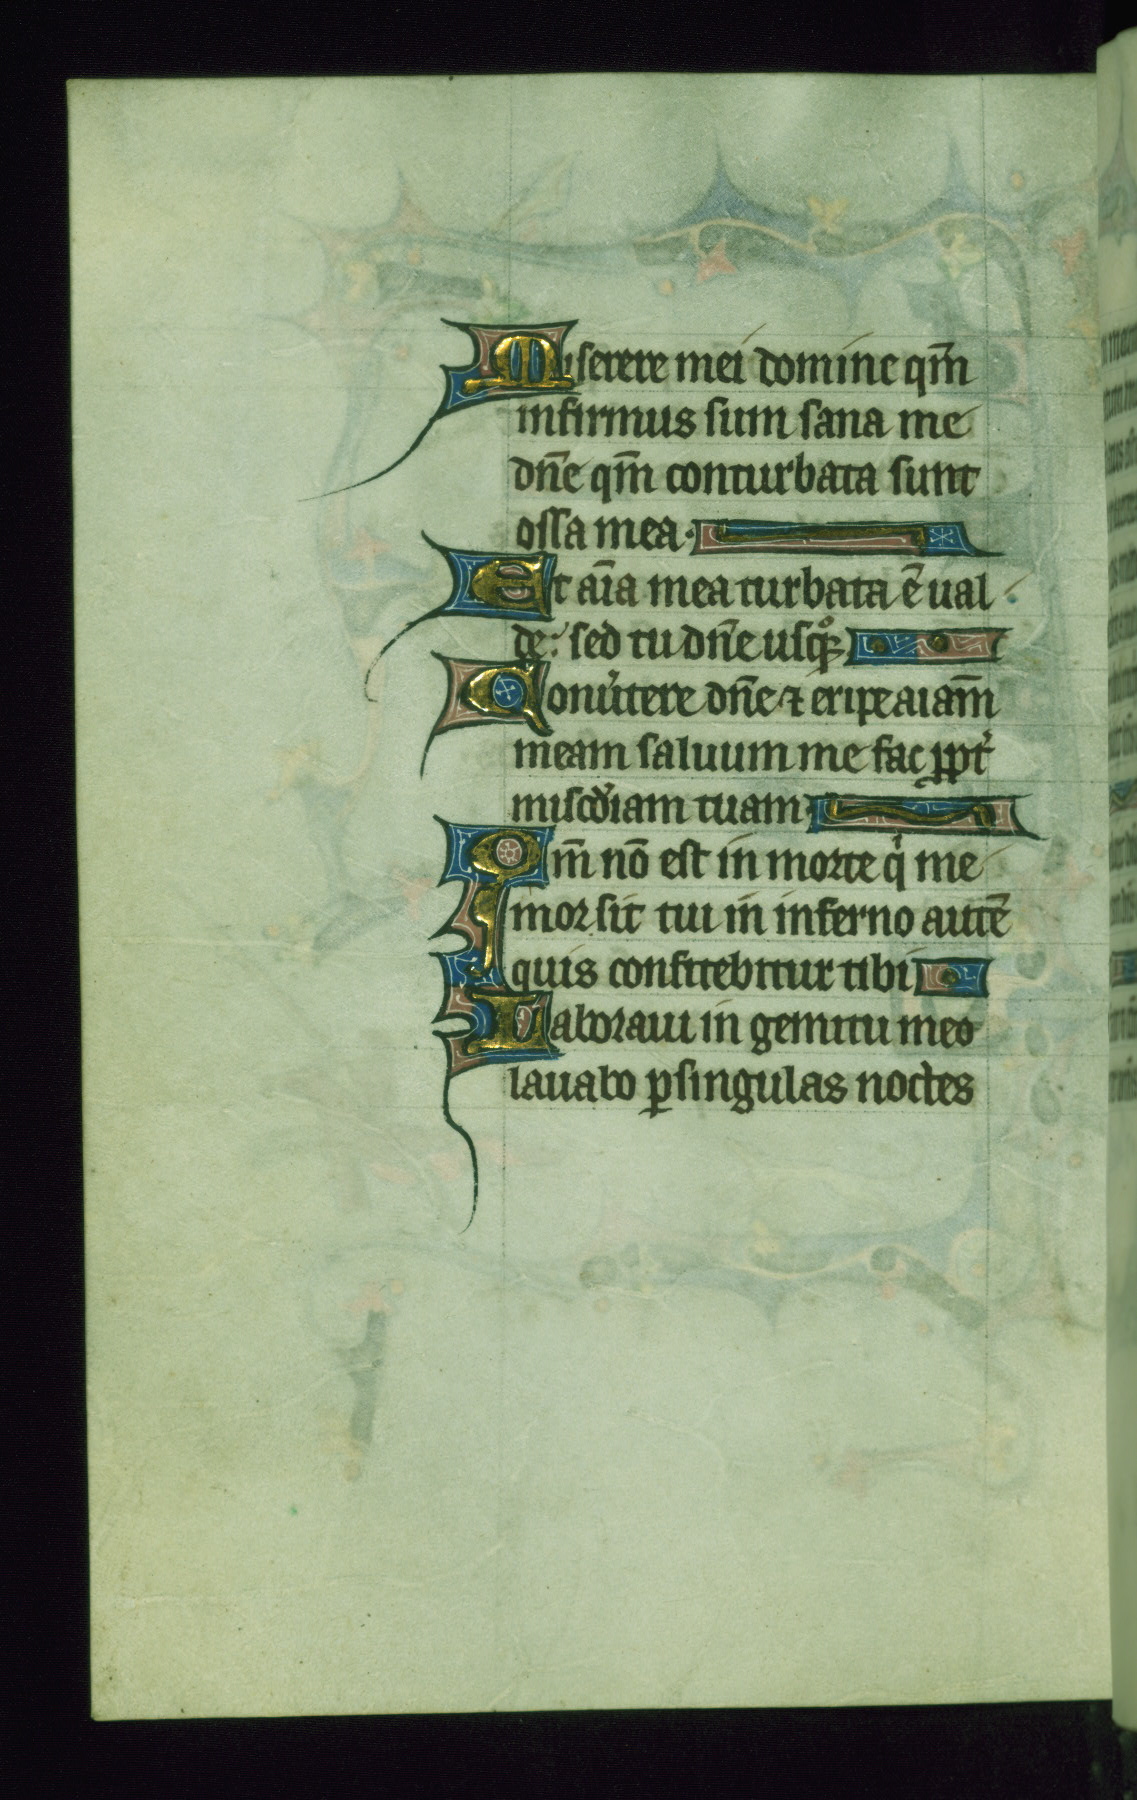 Miserere mei domine qm̄
infirmus sum sana me
dn̄e qm̄ conturbata sunt
ossa mea·
Et aīa mea turbata ē ual
de: sed tu dn̄e usqꝫ
Conũtere dn̄e ⁊ eripe aiam̄
meam saluum me fac ꝓpt̉
miscd̉iam tuam
Qm̄ nō est in morte qͥ me
mor sit tui in inferno autē
quis confitebitur tibi
Laboraui in gemitu meo
lauabo ꝑ singulas noctes